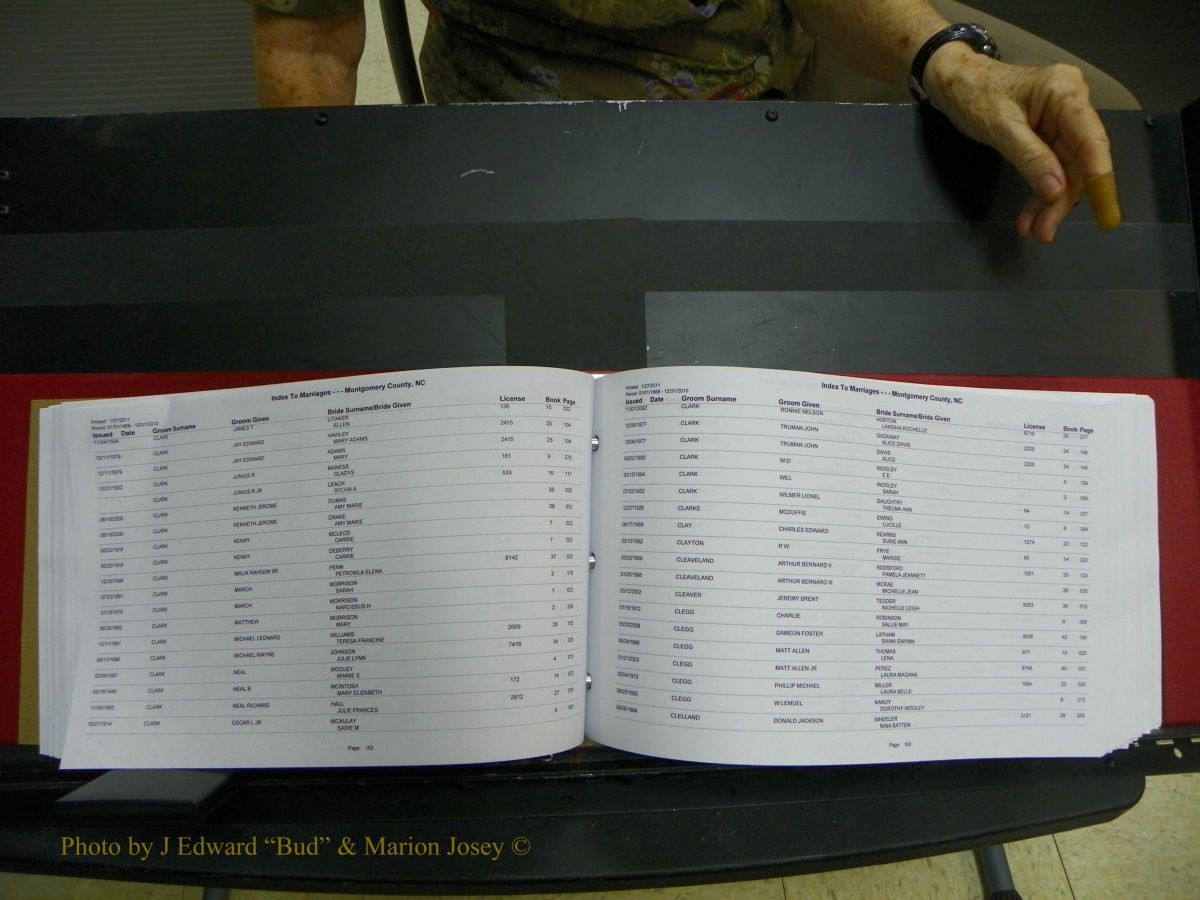 Printed: 1/27/2011
Period: 01/01/1868 - 12/31/2010
Index To Marriages - - - Montgomery County, NC
Issued Date Groom Surname Groom Given Bride Surname/Bride Given License Book Page
11/04/1934 CLARK JAMES T LITAKER 136 10 022
ELLEN
12/11/1979 CLARK JAY EDWARD HAWLEY 2415 25 104
MARY ADAMS
12/11/1979 CLARK JAY EDWARD ADAMS 2415 25 104
MARY
10/27/1933 CLARK JUNIUS R MANESS 161 9 270
GLADYS
CLARK JUNIUS R JR LEACH 533 16 111
SYLVIA A
08/18/2000 CLARK KENNETH JEROME DUMAS 38 033
AMY MARIE
08/18/2000 CLARK KENNETH JEROME DRAKE 38 033
AMY MARIE
05/20/1918 CLARK KENNY MCLEOD 7 023
CARRIE
05/20/1918 CLARK KENNY DEBERRY 7 023
CARRIE
12/30/1998 CLARK MALIK RAHEEM SR PENN 8142 37
PETRONILA ELENA
07/23/1881 CLARK MARCH MORRISON 2
SARAH
CLARK MARCH MORRISON 1
NARCISSUS H
CLARK MATTHEW MORRISON 2
MARY
12/11/1981 CLARK MICHAEL LEONARD WILLIAMS 2669 26 153
TERESA FRANCINE
09/11/1996 CLARK MICHAEL WAYNE JOHNSON 7418 34
JULIE LYNN
02/09/1897 CLARK NEAL WOOLEY 4
MINNIE S
05/18/1949 CLARK NEAL B MCINTOSH 172 14
MARY ELIZABETH
11/20/1982 CLARK NEAL RICHARD HALL 2612 27
JULIE FRANCES
10/07/1914 CLARK OSCAR L JR MCAULAY 6
SADIE M
Page 162
Printed: 1/27/2011
Period: 01/01/1868 - 12/31/2010
Index To Marriages - - - Montgomery County, NC
Issued Date Groom Surname Groom Given Bride Surname/Bride Given License Book Page
11/01/2002 CLARK RONNIE NELSON HORTON 8716 39 217
LAKISHA ROCHELLE
12/06/1977 CLARK TRUMAN JOHN GAZAWAY 2205 24 146
ALICE DAVIS
12/06/1977 CLARK TRUMAN JOHN DAVIS 2205 24 146
ALICE
09/23/1890 CLARK W D WOOLEY 3 199
E E
03/15/1894 CLARK WILL WOOLEY 3
SARAH
07/02/1952 CLARK WILMER LIONEL DAUGHTRY 64 14 221
THELMA ANN
12/27/1926 CLARKE MCDUFFIE EWING 12 8 394
LUCILLE
06/17/1969 CLAY CHARLES EDWARD KEARNS 1274 20 122
SUSIE ANN
03/10/1952 CLAYTON R W FRYE 50 14 222
MARGIE
09/23/1969 CLEAVELAND ARTHUR BERNARD II BODSFORD 1321 20 123
PAMELA JEANNETT
01/26/1998 CLEAVELAND ARTHUR BERNARD III MCRAE 36
MICHELLE JEAN
03/12/2002 CLEAVER JEREMY BRENT TEDDER 8583 39 218
NICHELLE LEIGH
01/18/1912 CLEGG CHARLIE ROBINSON 6
SALLIE MAY
05/20/2008 CLEGG DAMEON FOSTER LATHAM 42 186
SHANI GWYNN
CLEGG MATT ALLEN THOMAS 971 19
LENA
01/21/2003 CLEGG MATT ALLEN JR PEREZ 8748 40 021
LAURA MAGANA
02/04/1972 CLEGG PHILLIP MICHAEL MILLER 22 030
LAURA BELLE
08/25/1925 CLEGG W LEMUEL KANOY 8 272
DOROTHY WOOLEY
09/28/1984 CLELLAND DONALD JACKSON WHEELER 3121 28 029
NINA BATTEN
Page 163
Photo by J Edward “Bud” & Marion Josey ©